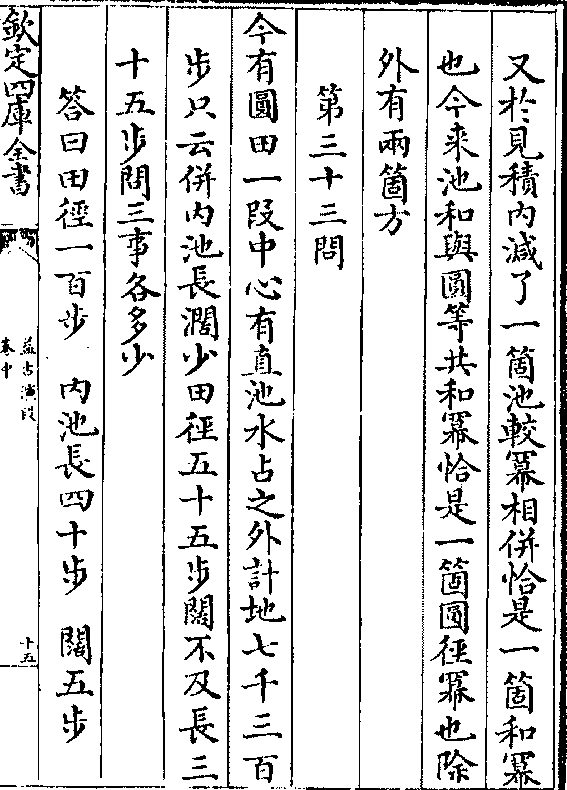 又於見積内減了一箇池較冪相併恰是一箇和冪
也今来池和與圓等共和冪恰是一箇圓徑冪也除
外有兩箇方
第三十三問
今有圓田一段中心有直池水占之外計地七千三百
步只云併内池長濶少田徑五十五步闊不及長三
十五步問三事各多少
答曰田徑一百步　内池長四十步　闊五步
欽定四庫全書
益古演段
卷中
十五